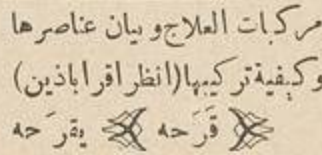 مركبات العلاج و بيان عناصرها
وكيفية تركيبها (انظر اقراباذين)
قَرَحه يقرَحه